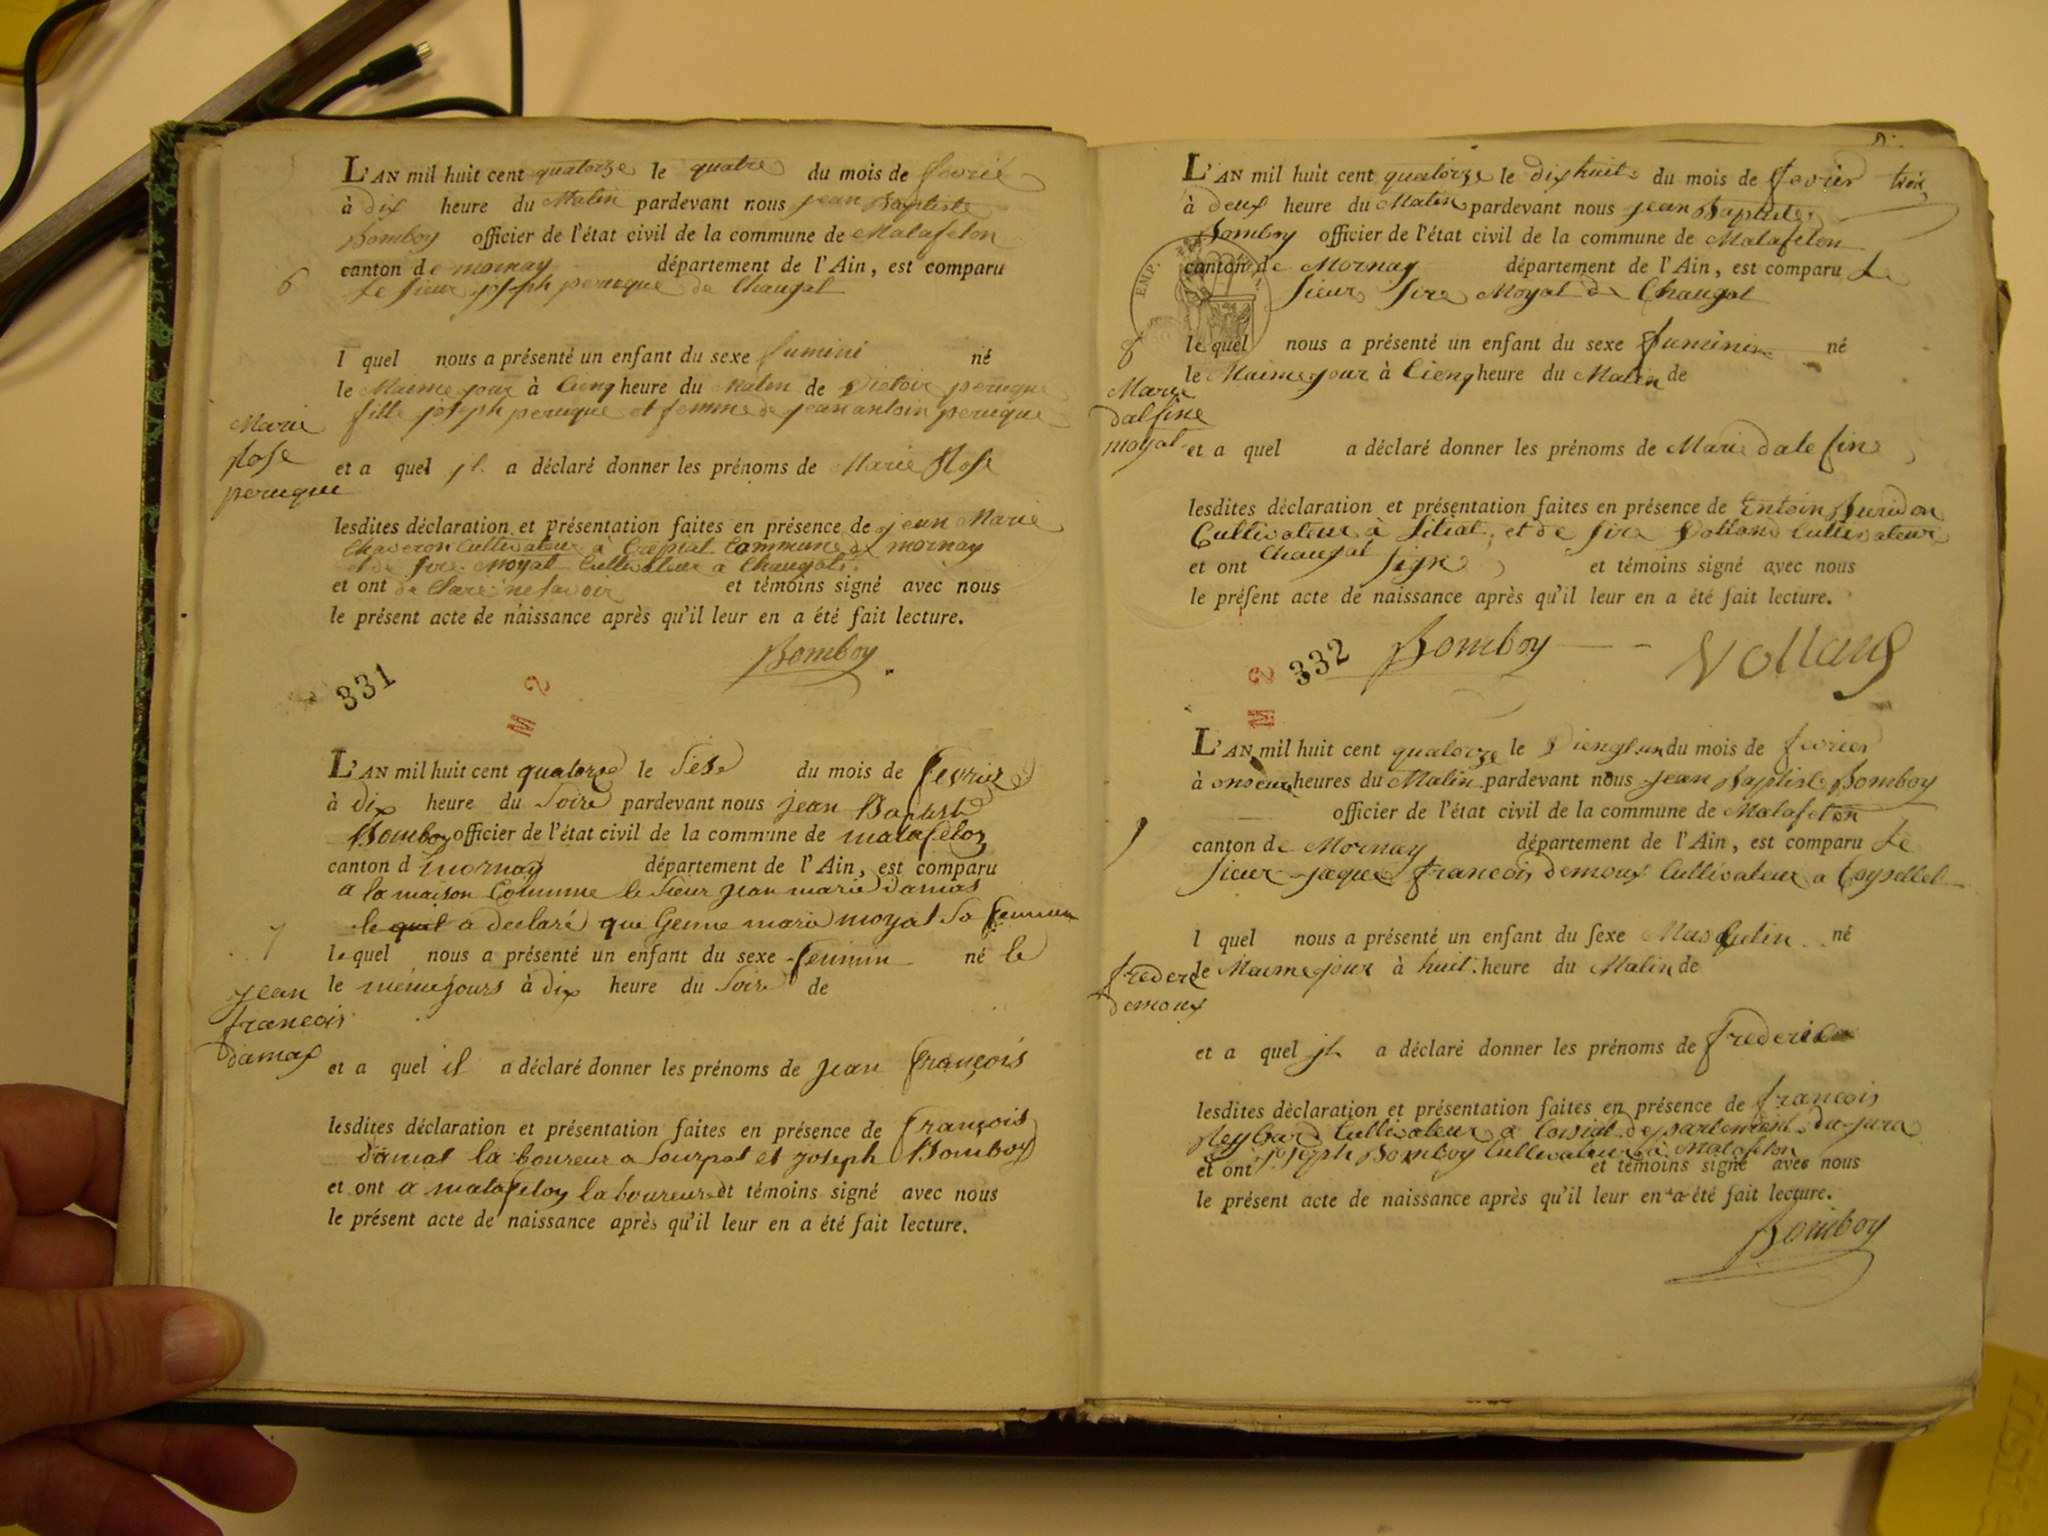 L'AN mil huit cent quatorze le quatre du mois de fevrié
à dix heure du Matin pardevant nous jean Baptiste
Bomboy officier de l'état civil de la commune de Matafelon
canton de mornay département de l'Ain, est comparu
Le sieur joseph peruque de Chaugat
6
l quel nous a présenté un enfant du sexe feminí né
le Maime jour à Cienq heure du Matin de Victoir peruque
fille joseph peruque et femme de jean antoin peruque
Marie
Rose
peruque
et a quel jl a déclaré donner les prénoms de Marie Rose
lesdites déclaration et présentation faites en présence de jean Marie
Chaveron Cultivateur à Crepiat Commune de mornay
et de fire Moyat Cultivateur a Chaugat
et ont de Claré ne savoir et témoins signé avec nous
le présent acte de naissance après qu'il leur en a été fait lecture.
Bomboy
331
2
L'AN mil huit cent quatorze le Sese du mois de fevrier
à dix heure du Soire pardevant nous jean Baptiste
Bomboy officier de l'état civil de la commune de matafelon
canton d mornay département de l'Ain, est comparu
a la maison Commune le Sieur jean marie damas
le quel a declaré que Genne marie moyat Sa femme
7
le quel nous a présenté un enfant du sexe feminin né le
le même jours à dix heure du Soire de
jean
francois
damas
et a quel il a déclaré donner les prénoms de jean françois
lesdites déclaration et présentation faites en présence de françois
damas la boureur a Sourpat et joseph Bomboy
et ont a matafelon la boureur et témoins signé avec nous
le présent acte de naissance après qu'il leur en a été fait lecture.
L'AN mil huit cent quatorze le dix huit du mois de fevrier trois
à deux heure du Matin pardevant nous jean Baptiste
Bomboy officier de l'état civil de la commune de Matafelon
canton de Mornay département de l'Ain, est comparu Le
EMP.
sieur fire Moyat de Chaugat
8
le quel nous a présenté un enfant du sexe feminin né
le Maime jour à Cienq heure du Matin de
Marie
dalfine
moyat
et a quel a déclaré donner les prénoms de Marie dale fine
lesdites déclaration et présentation faites en présence de Entoin
Cultivateur à et de fire Volland Cultivateur
et ont Chaugat signé et témoins signé avec nous
le présent acte de naissance après qu'il leur en a été fait lecture.
2 332 Bomboy Volland
L'AN mil huit cent quatorze le Viengt un du mois de fevrier
à onse heures du Matin pardevant nous jean Baptiste Bomboy
officier de l'état civil de la commune de Matafelon
9
canton de Mornay département de l'Ain, est comparu Le
sieur jaque francois demoux Cultivateur a Coysellet
l quel nous a présenté un enfant du sexe Masqulin né
le Maime jour à huit heure du Matin de
frederic
demoux
et a quel jl a déclaré donner les prénoms de frederic
lesdites déclaration et présentation faites en présence de francois
Reybard Cultivateur a departement du jura
et ont joseph Bomboy Cultivateur à Matafelon et témoins signé avec nous
le présent acte de naissance après qu'il leur en a été fait lecture.
Bomboy